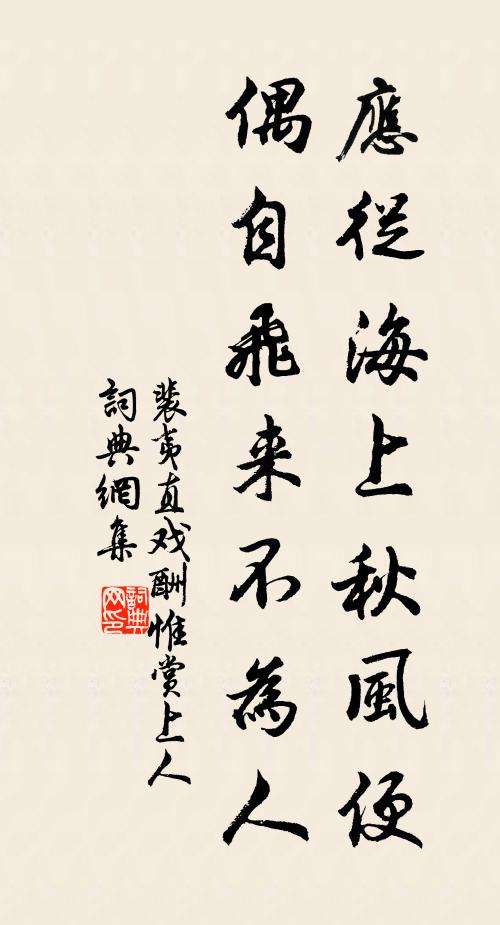 應從海上秋風便
偶自飛来不為人
裴夷直戏酬惟赏上人
詞典網集
詞典网印